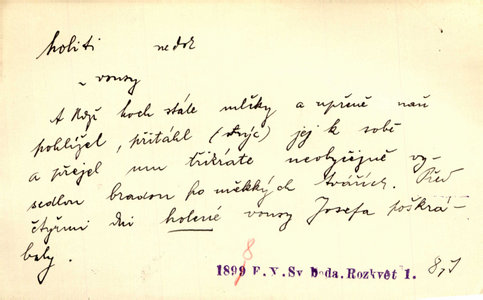 holiti nedok
~ vousy
A když hoch stále mlčky a upřeně naň
pohlížel, přitáhl (strýc) jej k sobě
a přejel mu třikráte neobyčejně vy-
sedlou bradou po měkkých tvářích. Před
čtyřmi dni holené vousy Josefa poškrá-
baly.
8
1899 F.X.Svoboda.Rozkvět 1. 8,1